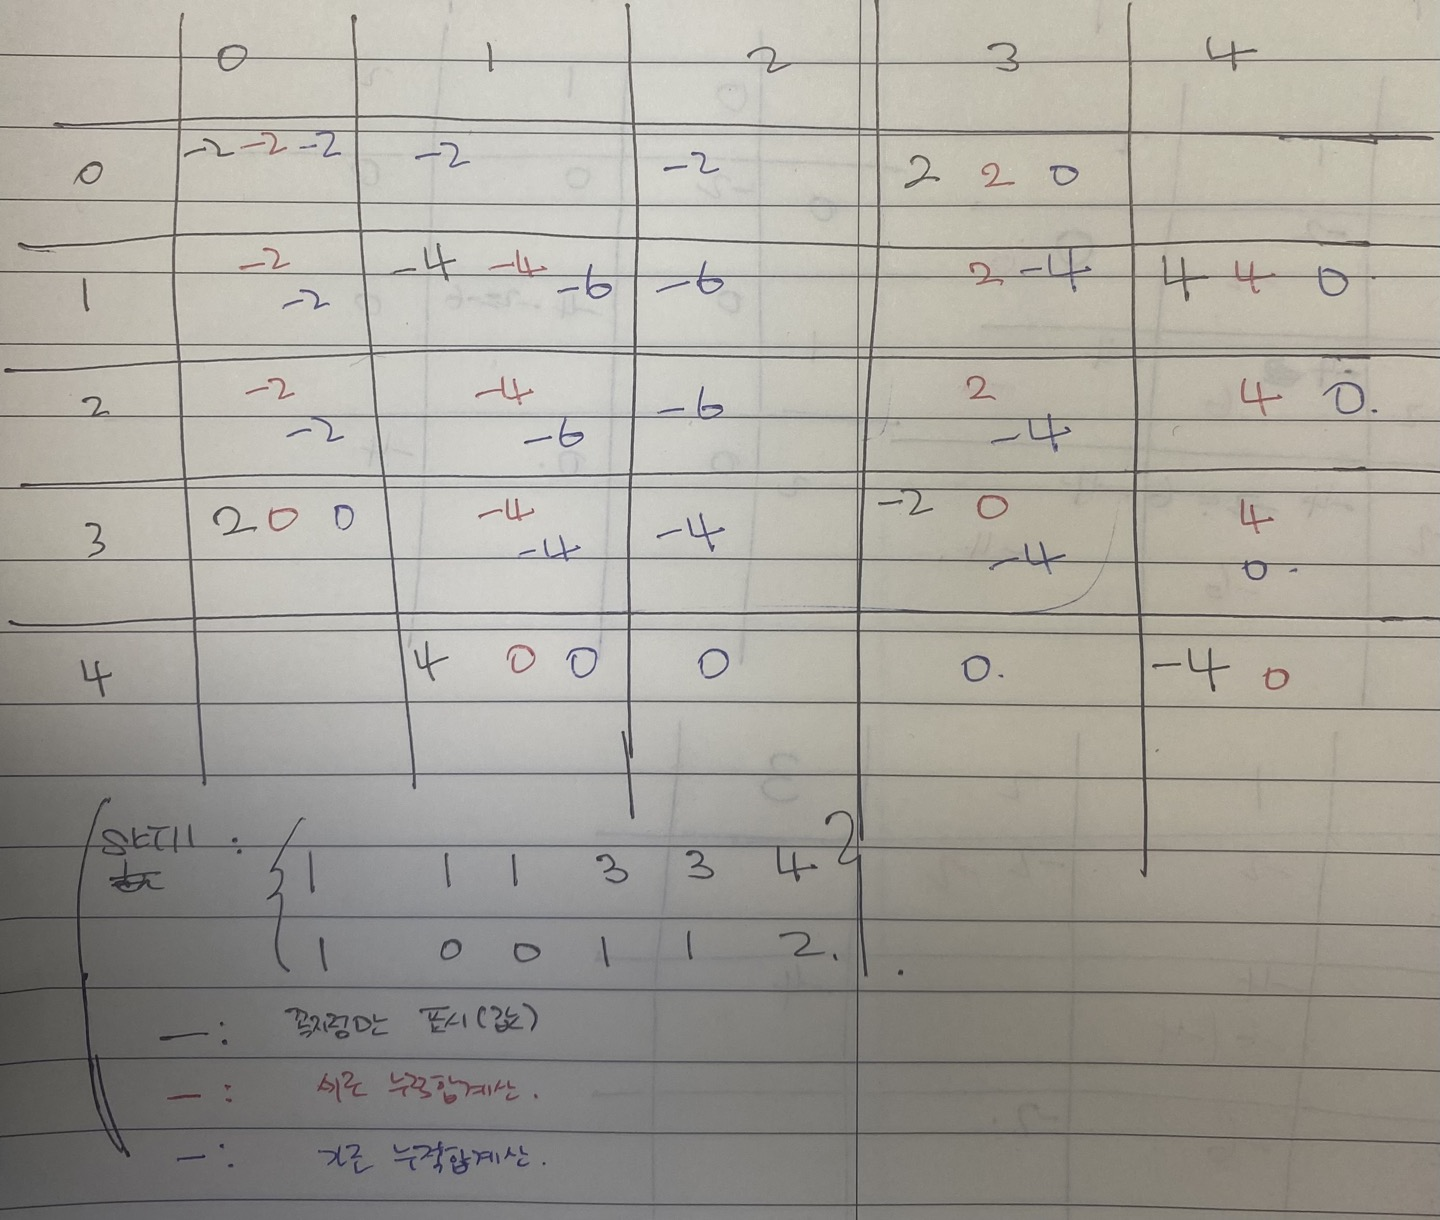 0 1 2 3 4
0 -2 -2 -2 -2 -2 2 2 0
1 -2 -2 -4 -4 -6 -6 2 -4 4 4 0
2 -2 -2 -4 -6 -6 2 -4 4 0.
3 2 0 0 -4 -4 -4 -2 0 -4 4 0.
4 4 0 0 0 0. -4 0
skill : { 1 1 1 3 3 4 }
{ 1 0 0 1 1 2. } .
—: 꼭지점만 표시(값)
—: 세로 누적합계산.
—: 가로 누적합계산.